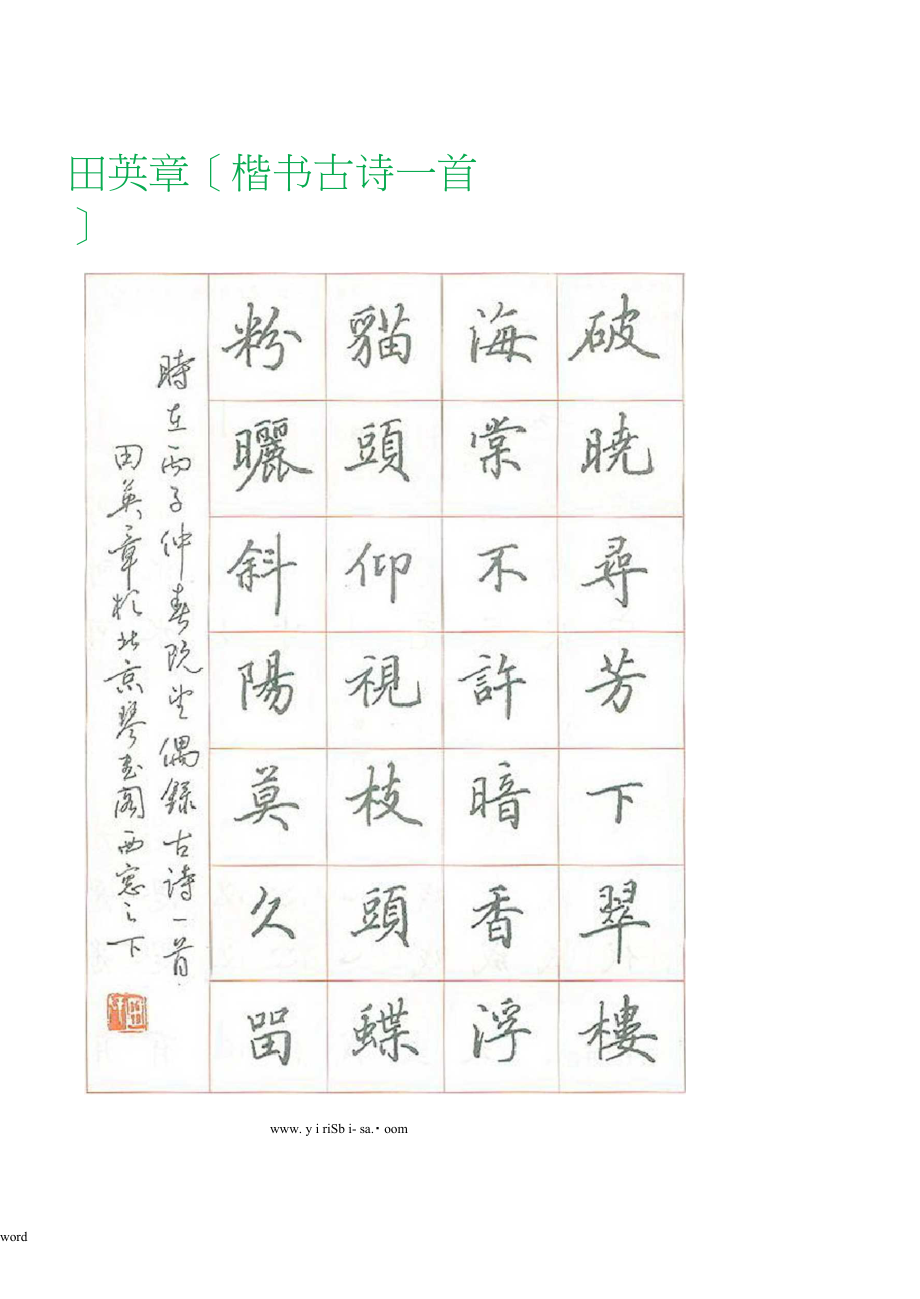 田英章〔楷书古诗一首
〕
破曉尋芳下翠樓
海棠不許暗香浮
貓頭仰視枝頭蝶
粉曬斜陽莫久留
時在丙子仲春既望偶錄古詩一首
田英章於北京琴書閣西窓之下
www. y i riSb i- sa.• oom
word